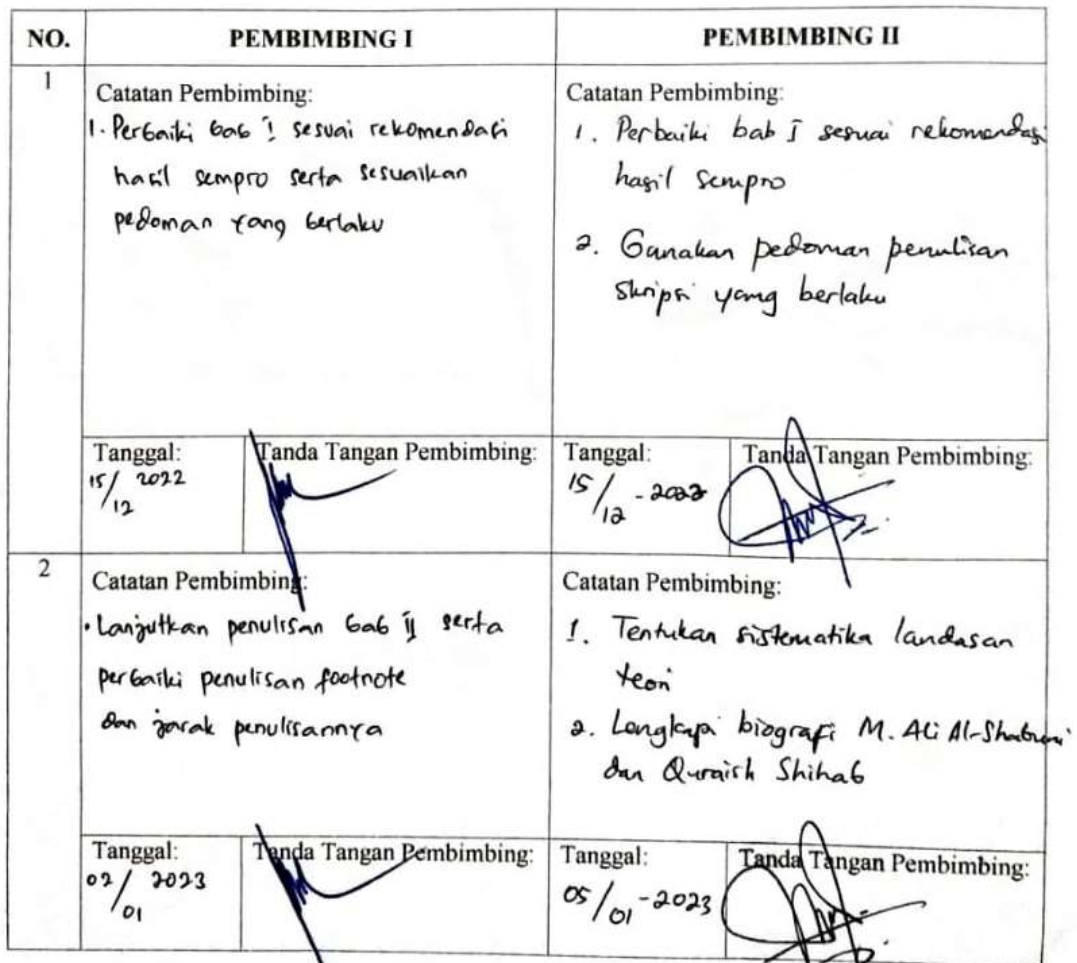 NO. PEMBIMBING I PEMBIMBING II
1
Catatan Pembimbing:
1. Perbaiki bab I sesuai rekomendasi
hasil sempro serta sesuaikan
pedoman yang berlaku
Catatan Pembimbing:
1. Perbaiki bab I sesuai rekomendasi
hasil sempro
2. Gunakan pedoman penulisan
skripsi yang berlaku
Tanggal:
15/12 2022
Tanda Tangan Pembimbing:
Tanggal:
15/12 - 2022
Tanda Tangan Pembimbing:
2
Catatan Pembimbing:
• Lanjutkan penulisan bab II serta
perbaiki penulisan footnote
dan jarak penulisannya
Catatan Pembimbing:
1. Tentukan sistematika landasan
teori
2. Lengkapi biografi M. Ali Al-Shabuni
dan Quraish Shihab
Tanggal:
02/01 2023
Tanda Tangan Pembimbing:
Tanggal:
05/01 - 2023
Tanda Tangan Pembimbing: